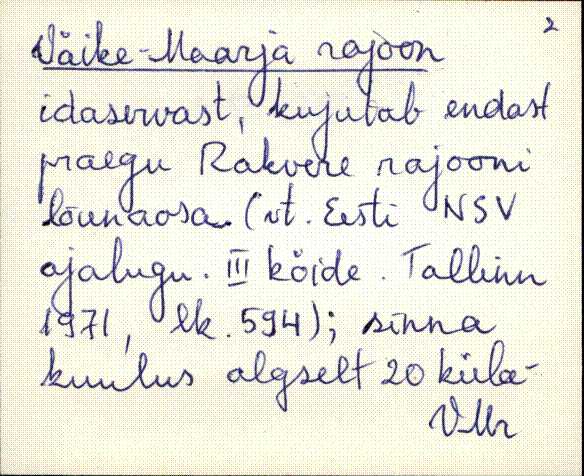 2
Väike-Maarja rajoon
idaservast, kujutab endast
praegu Rakvere rajooni
lõunaosa (vt. Eesti NSV
ajalugu. III köide. Tallinn
1971, lk. 594); sinna
kuulus algselt 20 küla-
VMr